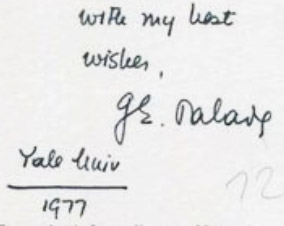 with my best
wishes,
G.E. Palade
Yale Univ
1977
12